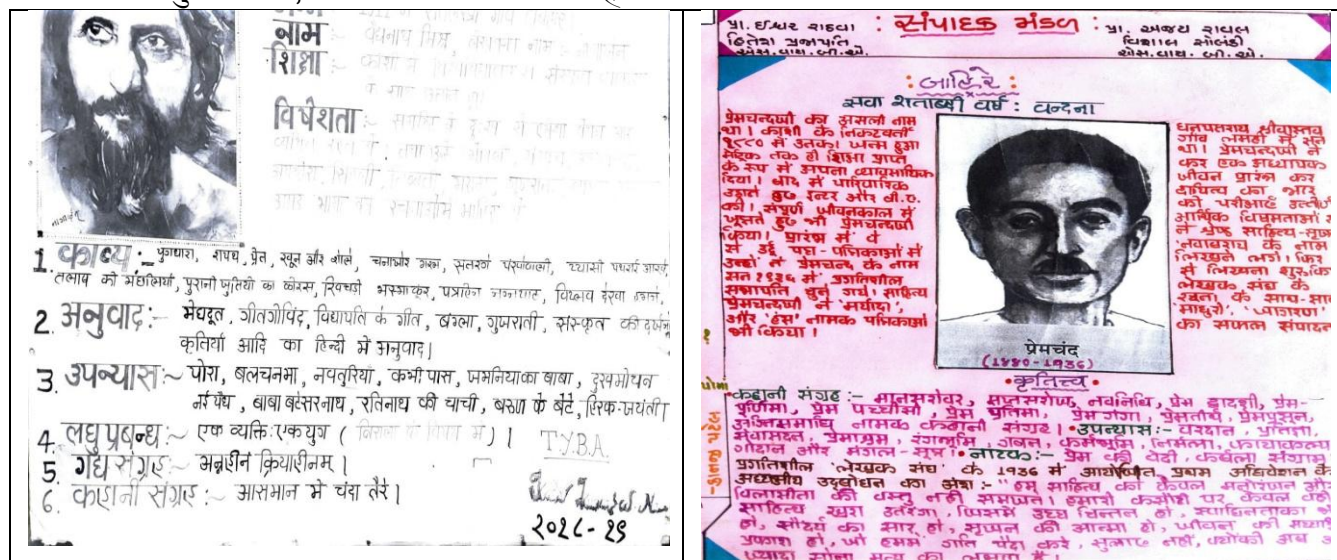 नाम
वैद्यनाथ मिश्र,
शिक्षा :-
विषेशता :-
1. काव्य :- युगधारा, शपथ, प्रेत, खून और शोले,
तलाब की मछलियाँ, पुरानी जुतियों का कोरस,
2. अनुवाद :- मेघदूत, गीतगोविंद, विद्यापति के गीत, बंग्ला, गुजराती, संस्कृत की
कृतियां आदि का हिन्दी में अनुवाद।
3. उपन्यास :~ पोरा, बलचनमा, नवतुरिया, कभी पास, जमनियाका बाबा, दुखमोचन
नई पौध, बाबा बटेसरनाथ, रतिनाथ की चाची, बरुण के बेटे, हिरक-जयंती।
4. लघु प्रबन्ध :~ एक व्यक्ति : एक युग ( निराला के विषय में ) ।
T.Y.B.A.
5 गद्य संग्रह :~ अन्नहीनं क्रियाहीनम् ।
6. कहानी संग्रह :~ आसमान मे चंदा तैरे ।
૨૦૨૮-૨૬
: संपादक मंडल :
પ્રા. ઈશ્વર રાઠવા
હિતેશ પ્રજાપતિ
એસ.વાય.બી.એ.
પ્રા. અજય રાવલ
વિશાલ સોલંકી
એસ.વાય. બી.એ.
: जाहिरे :
सवा शताब्दी वर्ष : वन्दना
प्रेमचन्दजी का असली नाम
था। काशी के निकटवर्ती
१८८० में उनका जन्म हुआ
मैट्रिक तक ही शिक्षा प्राप्त
के रूप में अपना व्यावसायिक
दिया। बाद में पारिवारिक
उठाते हुए इन्टर और बी.ए.
की। संपूर्ण जीवनकाल में
जूझते हुए भी प्रेमचन्दजी
किया। प्रारंभ में वे
से उर्दू पत्र-पत्रिकाओं में
उन्हों ने प्रेमचन्द के नाम
सन १९३६ में प्रगतिशील
सभापति चुने गये। साहित्य
प्रेमचन्दजी ने 'मर्यादा',
और 'हंस' नामक पत्रिकाओं
भी किया।
धनपतराय श्रीवास्तव
गाँव लमही में सन
था। प्रेमचन्दजी ने
कर एक अध्यापक
जीवन प्रारंभ कर
दायित्व का भार
की परीक्षाएँ उत्तीर्ण
आर्थिक विषमताओं से
ने श्रेष्ठ साहित्य-सृजन
'नवाबराय' के नाम
लिखने लगे। फिर
से लिखना शुरु किया
लेखक संघ के
रचना के साथ-साथ
'माधुरी', 'जागरण'
का सफल संपादन
प्रेमचंद
(1880-1936)
• कृतित्व •
• कहानी संग्रह :- मानसरोवर, सप्तसरोज, नवनिधि, प्रेम द्वादशी, प्रेम-
पूर्णिमा, प्रेम पच्चीसी, प्रेम प्रतिमा, प्रेम गंगा, प्रेमतीर्थ, प्रेमप्रसून,
नामक कहानी संग्रह। • उपन्यास :- वरदान, प्रतिज्ञा,
सेवासदन, प्रेमाश्रम, रंगभूमि, गबन, कर्मभूमि, निर्मला, कायाकल्प
गोदान और मंगल-सूत्र। • नाटक :- प्रेम की वेदी, कर्बला, संग्राम
प्रगतिशील 'लेखक संघ' के 1936 में आयोजित, प्रथम अधिवेशन के
अध्यक्षीय उद्बोधन का अंश :- "हम साहित्य को केवल मनोरंजन और
विलासीता की वस्तु नहीं समझते। हमारी कसौटी पर केवल वही
साहित्य खरा उतरेगा, जिसमें उच्च चिन्तन हो, स्वाधिनता का
हो, सौंदर्य का सार हो, सृजन की आत्मा हो, जीवन की
प्रकाश हो, जो हममें गति पैदा करे, सुलाए नहीं, क्योंकि अब
ज्यादा सोना मृत्यु का लक्षण है।